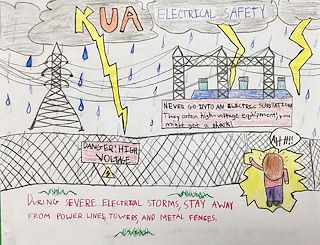 KUA ELECTRICAL SAFETY
NEVER GO INTO AN ELECTRIC SUBSTATION
They contain high-voltage equipment, you
might get a shock!
DANGER! HIGH
VOLTAGE
AH!!!
DURING SEVERE ELECTRICAL STORMS, STAY AWAY
FROM POWER LINES, TOWERS AND METAL FENCES.